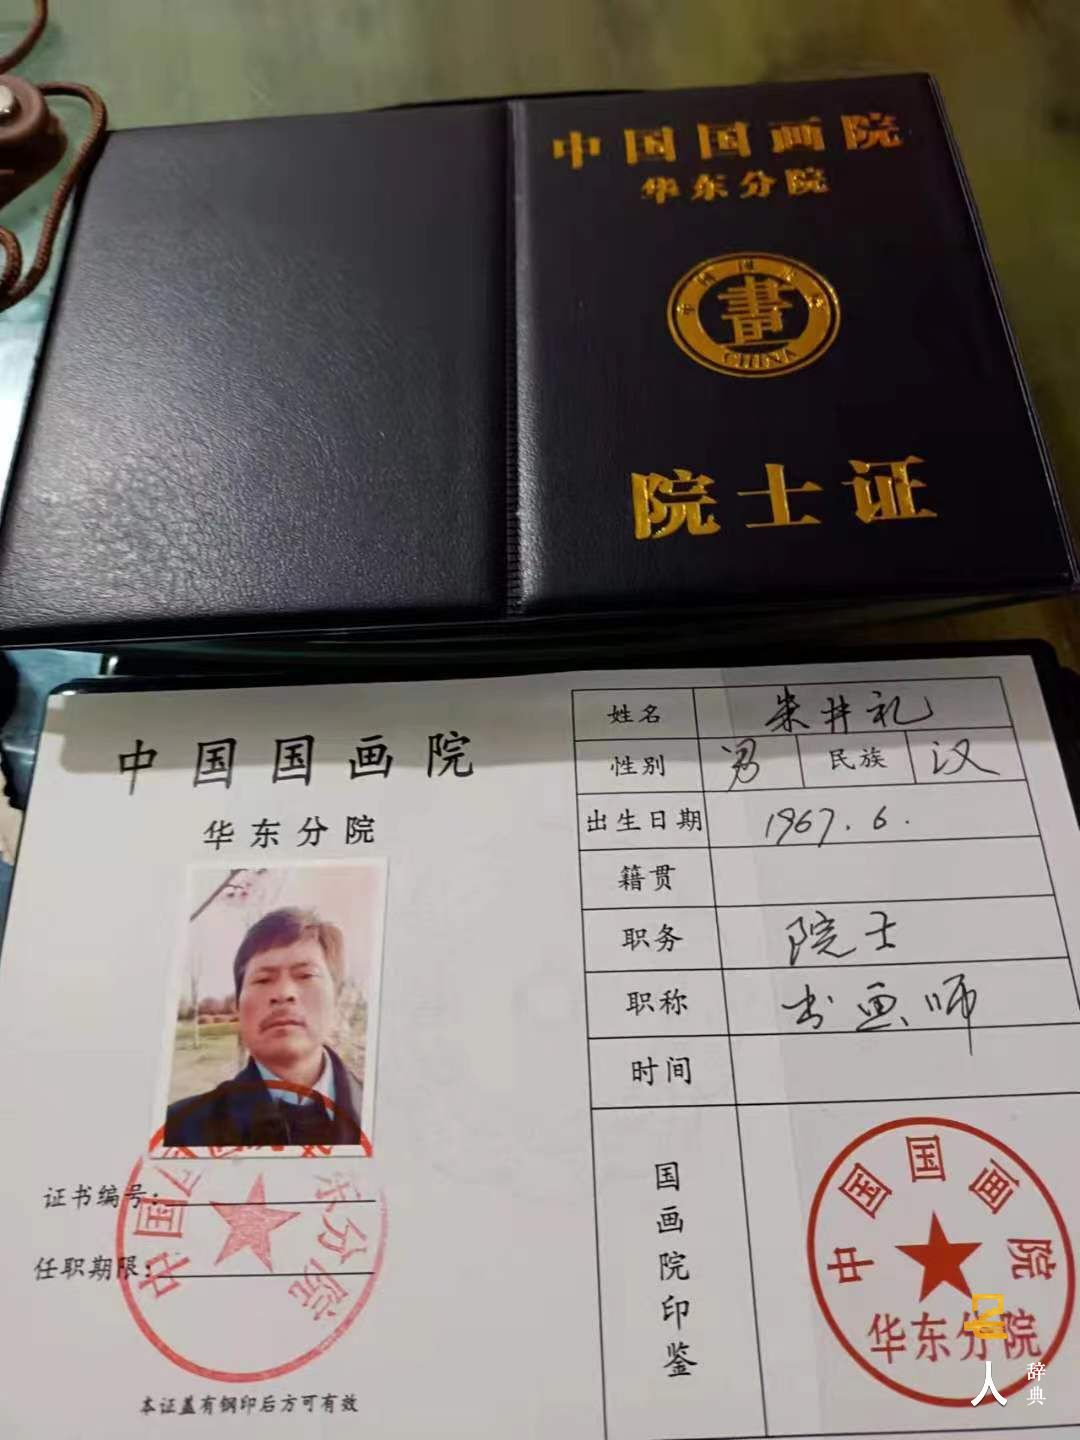 中国国画院
华东分院
中国国
書画
CHINA
院士证
中国国画院
华东分院
证书编号：
任职期限：
中国国
东分院
本证盖有钢印后方可有效
姓名 朱井礼
性别 男 民族 汉
出生日期 1967.6.
籍贯
职务 院士
职称 书画师
时间
国画院印鉴
中国国画院
华东分院
人
辞典